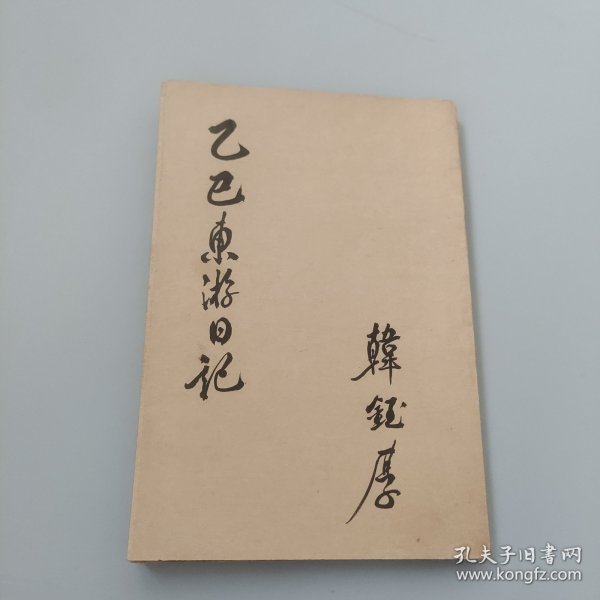 乙巳東游日記
韓鈺厚
孔夫子旧書网
www.kongfz.com